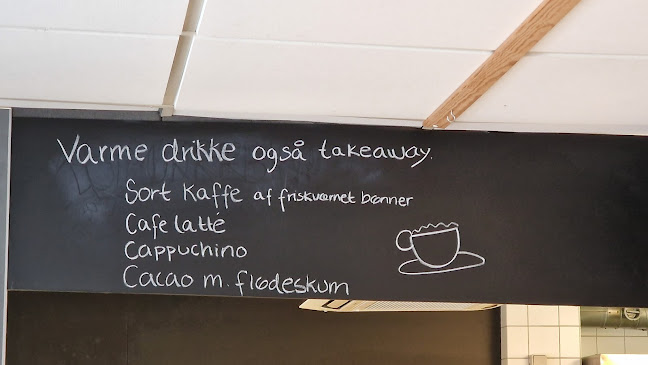 Varme drikke også takeaway.
Sort Kaffe af friskværnet bønner
Cafe latté
Cappuchino
Cacao m. flødeskum